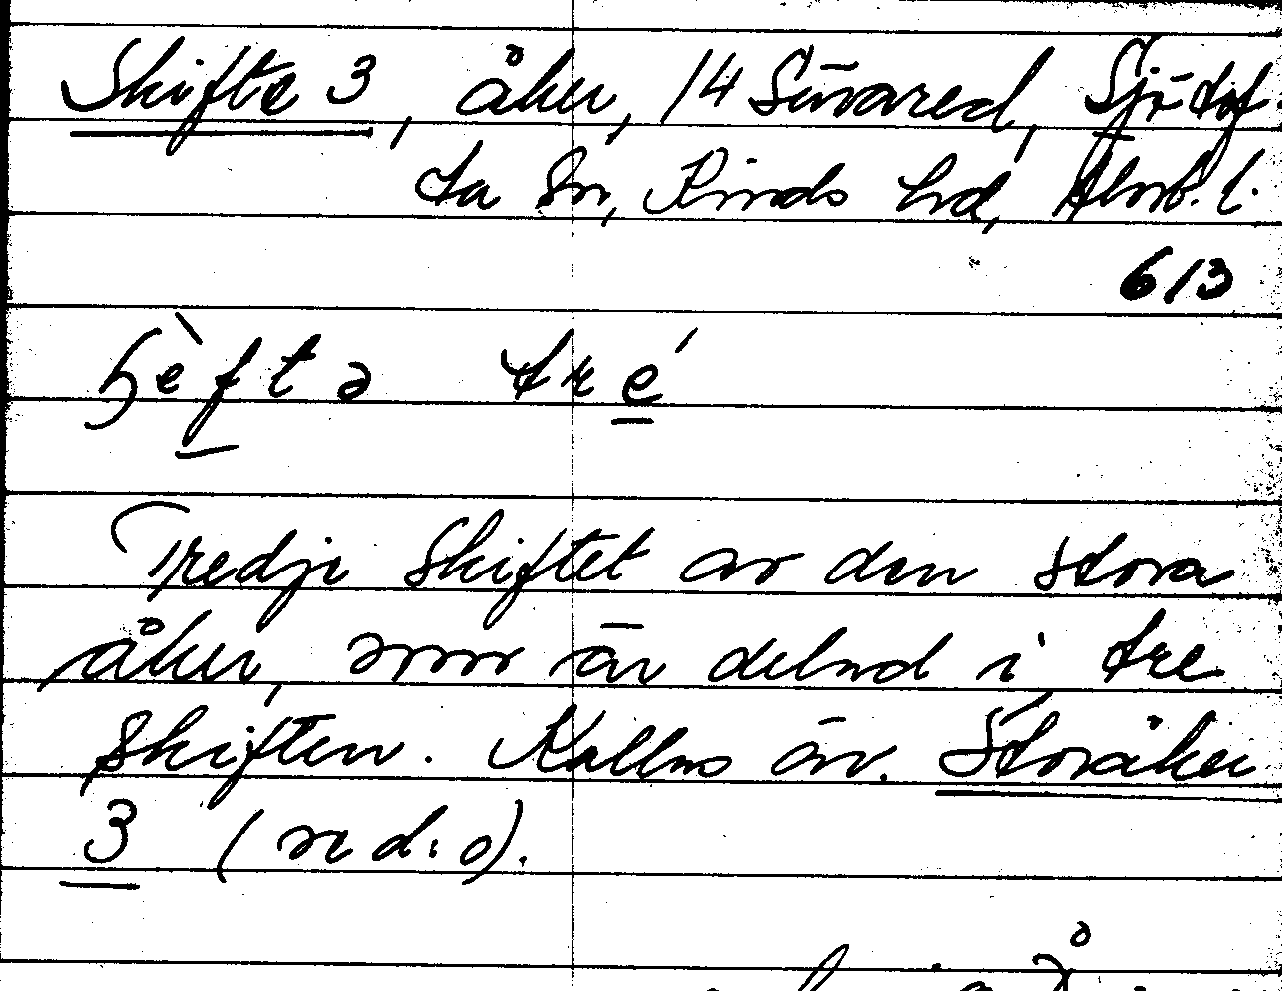 Skifte 3, åker, 14 Sävared, Sjötof-
ta sn, Kinds hd, Älvsb. l.
613
ɧèftə tré
Tredje skiftet av den stora
åker, som är delad i tre
skiften. Kallas äv. Storåker
3 (se d:o).